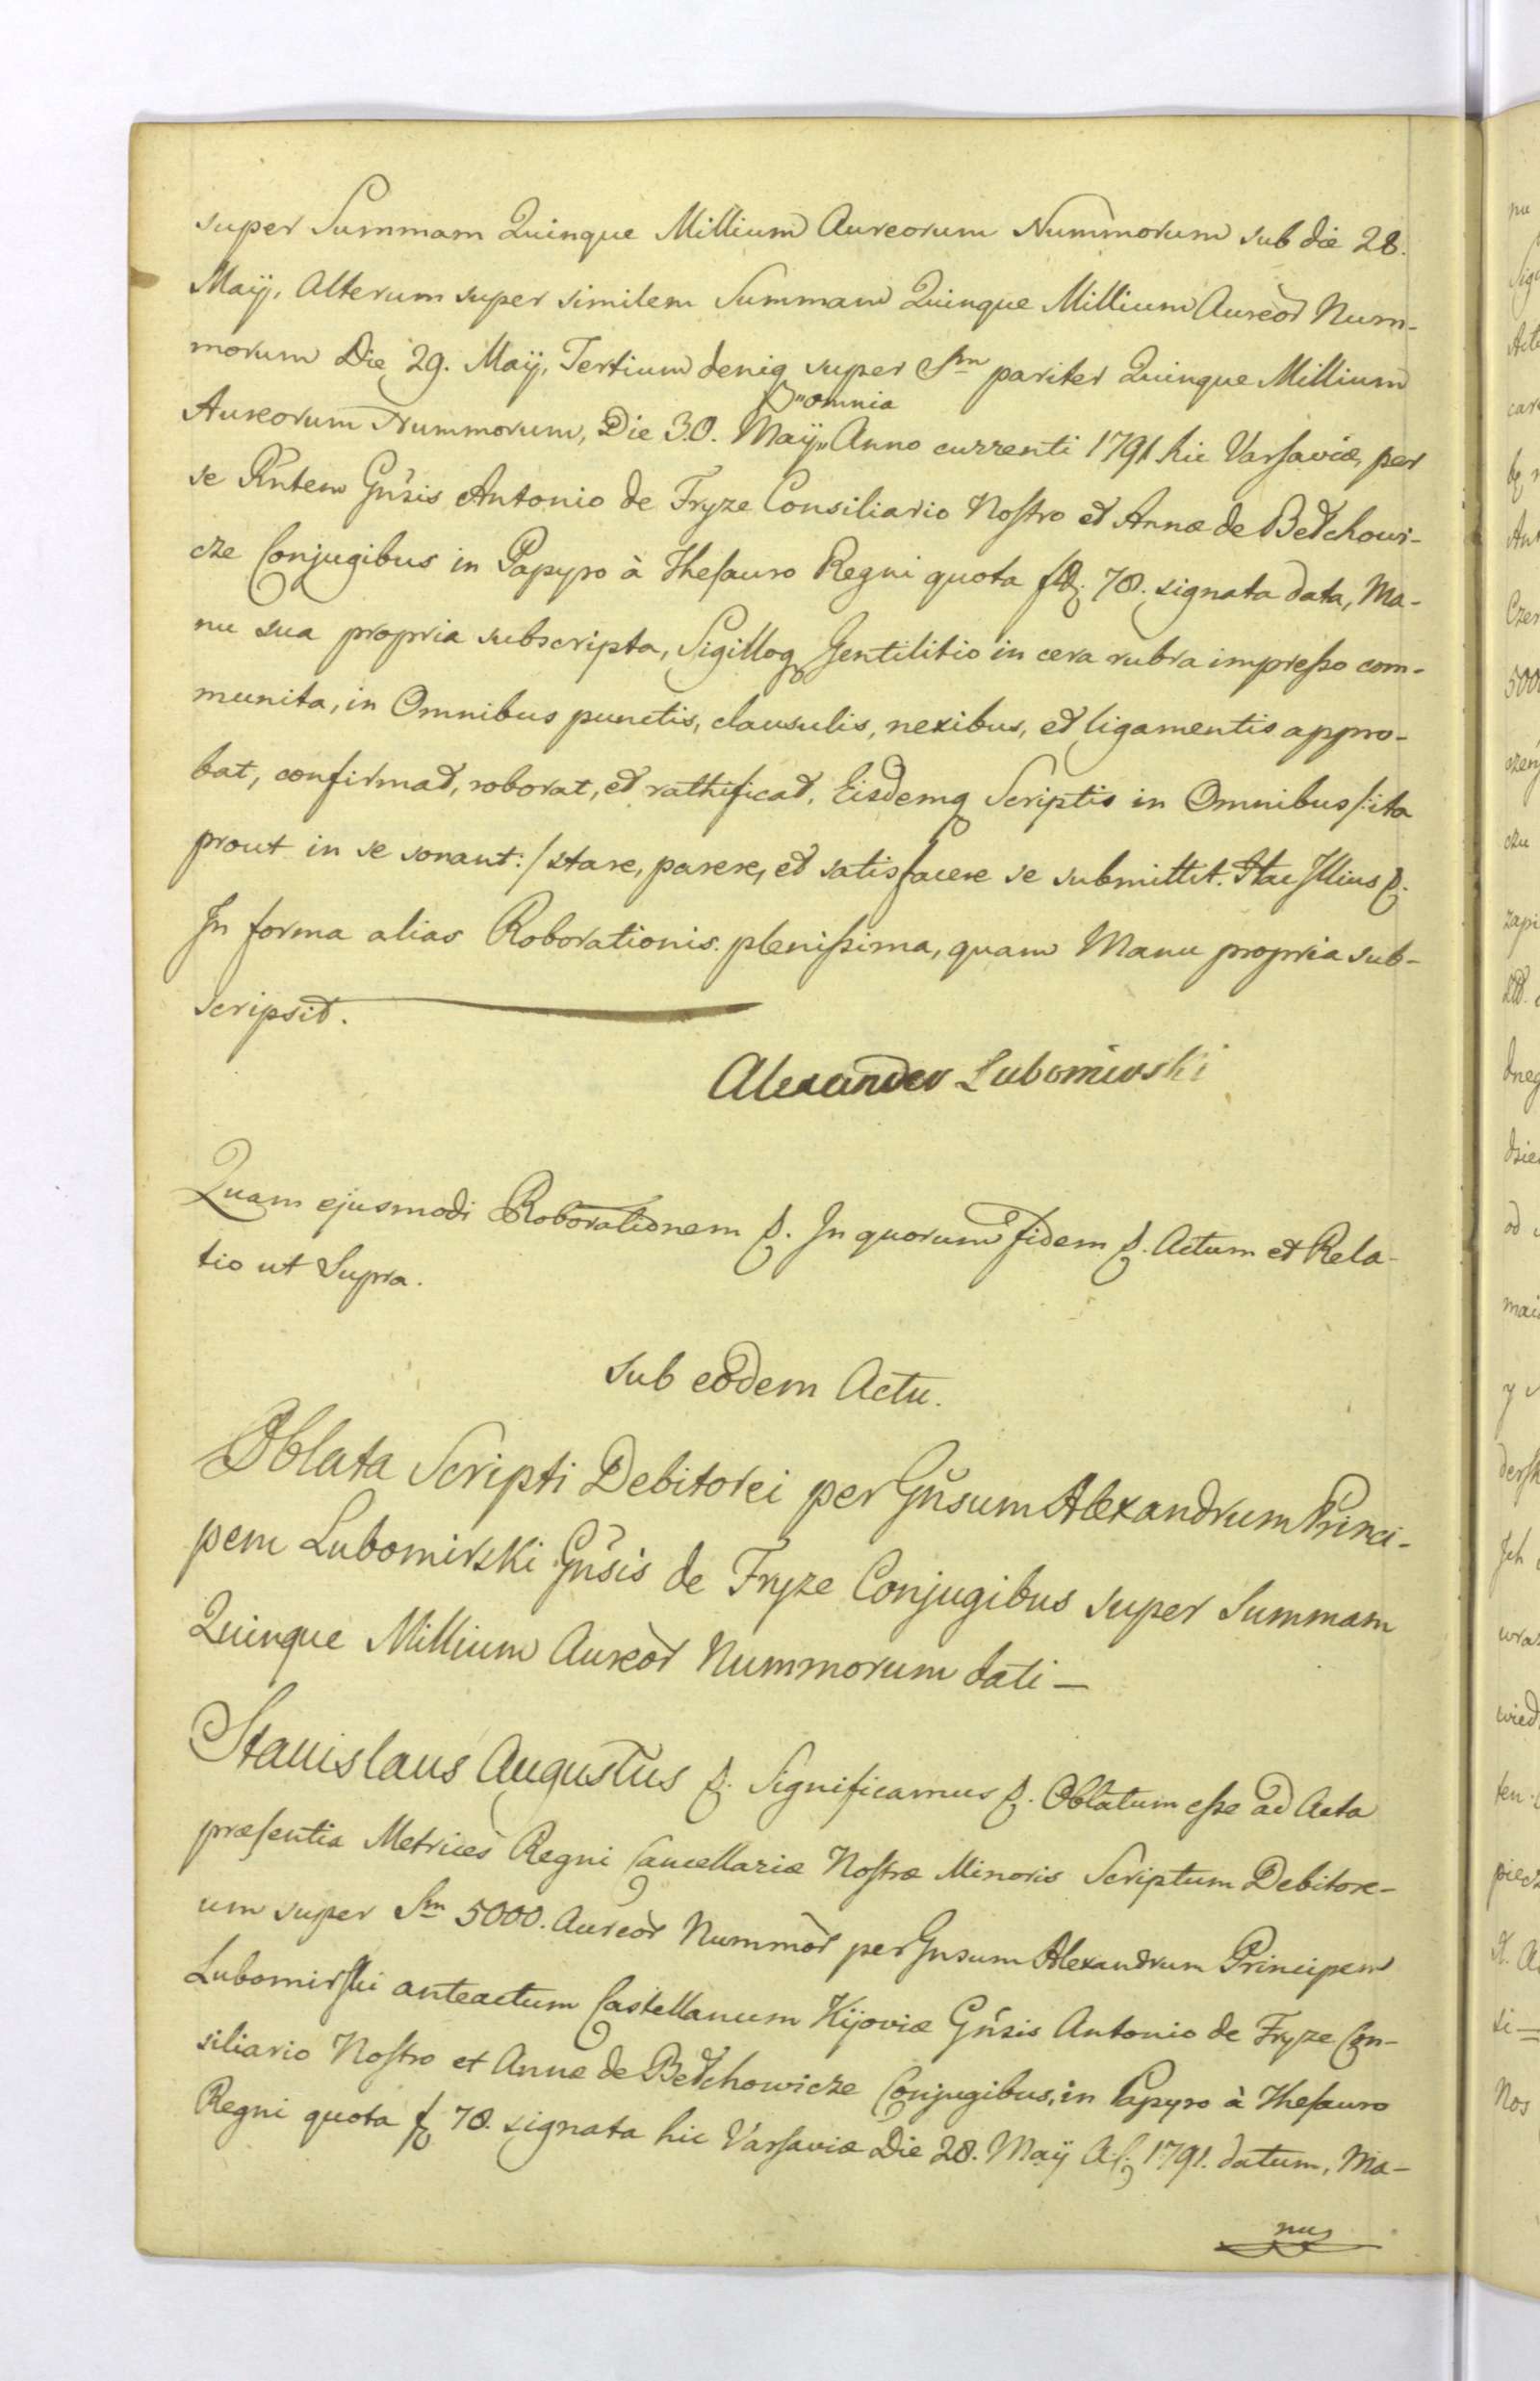 super Summam Quinque Millium Aureorum Nummorum sub die 28.
Maÿ, Alterum super similem Summam Quinque Millium Aureor Num-
morum Die 29. Maÿ, Tertium deniq super Sm pariter Quinque Millium
omnia
Aureorum Nummorum, Die 30. Maÿ Anno currenti 1791 hic Varsaviæ, per
se Pntem Gnsis Antonio de Fryze Consiliario Nostro et Annæ de Bełchowi-
cze Conjugibus in Papyro à Thesauro Regni quota 78. signata data, Ma-
nu sua propria subscripta, Sigilloq Gentilitio in cera rubra impresso com-
munita, in Omnibus punctis, clausulis, nexibus, et ligamentis appro-
bat, confirmat, roborat, et rathificat, Eisdemq Scriptis in Omnibus /:ita
prout in se sonant:/ stare, parere, et satisfacere se submittit. Hac Illius
In forma alias Roborationis plenissima, quam Manu propria sub-
scripsit.
Alexander Lubomirski
Quam ejusmodi Roborationem In quorum fidem Actum et Rela-
tio ut Supra.
Sub eodem Actu.
Oblata Scripti Debitorei per Gnsum Alexandrum Princi-
pem Lubomirski Gnsis de Fryze Conjugibus super Summam
Quinque Millium Aureor Nummorum dati —
Stanislaus Augustus Significamus Oblatum esse ad Acta
præsentia Metrices Regni Cancellariæ Nostræ Minoris Scriptum Debitore-
um super Sm 5000. Aureor Nummor per Gnsum Alexandrum Principem
Lubomirski anteactum Castellanum Kijoviæ Gnsis Antonio de Fryze Con-
siliario Nostro et Annæ de Bełchowicze Conjugibus, in Papyro à Thesauro
Regni quota 78. signata hic Varsaviæ Die 28. Maÿ 1791. datum, Ma-
nu